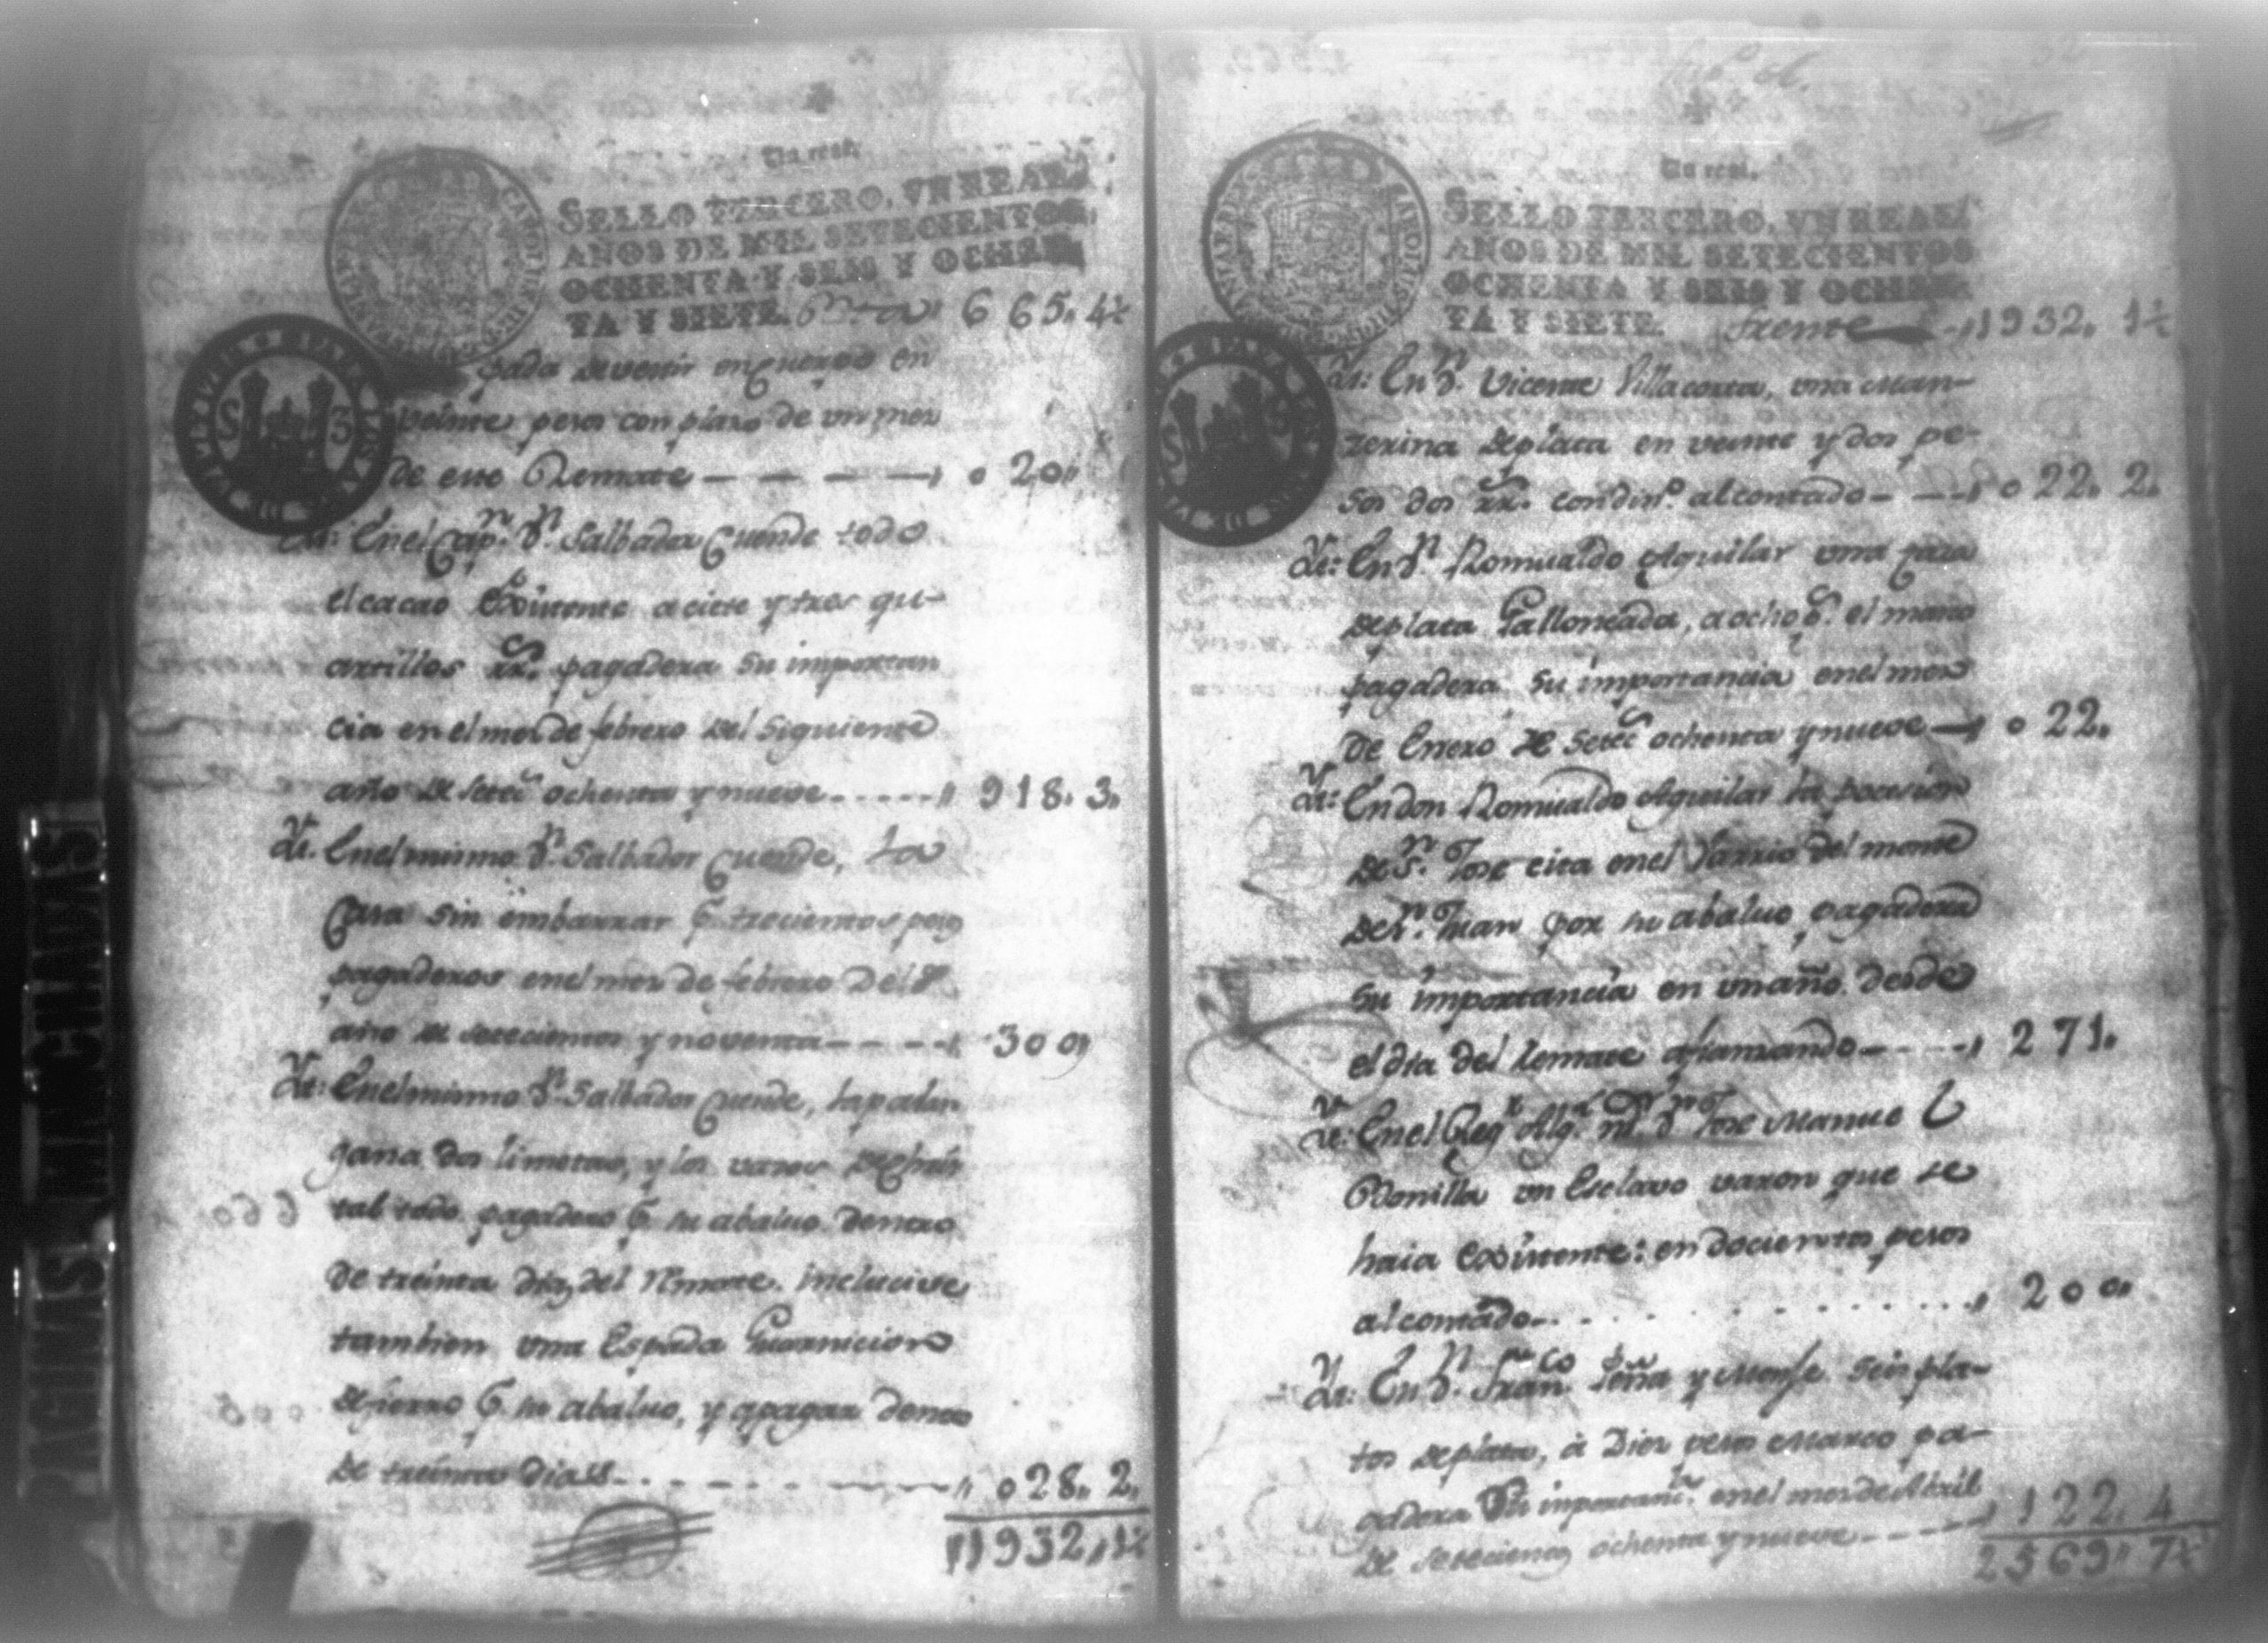 Un real.
SELLO TERCERO, UN REAL,
AÑOS DE MIL SETECIENTOS
OCHENTA Y SEIS Y OCHEN
TA Y SIETE. 665,, 4½
pada de vestir en
veinte pesos con plazo de un mes
de este Remate — — — — 020,,
Yt: En el Capn. Dn. Salbador Cuende todo
el cacao Existente a ciete y tres qu-
artillos rrs. pagadera su importan
cia en el mes de febrero del Siguiente
año de setecs ochenta y nueve - - - - - 918,, 3,
Yt. En el mismo Dn. Salbador Cuende, La
Casa sin embarrar trecientos
pagaderos en el mes de febrero del
año de setecientos y noventa - - - - 300,,
Yt: En el mismo Dn. Salbador Cuende, la palan
gana, dos limetas, y los vasos de Chris
tal todo pagadero su abaluo dentro
de treinta dias del Remate. inclucive
tambien una Espada Guarnicion
de fierro su abaluo, y a pagar dentro
de treinta dias - - - - - 028,, 2,
1932,, 1½
PAGINAS MANCHADAS
Un real.
SELLO TERCERO, UN REAL,
AÑOS DE MIL SETECIENTOS
OCHENTA Y SEIS Y OCHEN
TA Y SIETE. frente - 1932,, 1½
Yt: En Dn. Vicente Villacorta, una Man-
zerina de plata en veinte y dos pe-
sos dos rrs. con dino. al contado - - - 022,, 2,
Yt: En Dn. Romualdo Aguilar una
de plata Galloneada, a ocho ps. el marco
pagadera su importancia en el mes
de Enero de setecs ochenta y nueve — 022,,
Yt: En don Romualdo Aguilar la
de Sn. Jose cita en el Varrio del monte
de Sn. Juan por su abaluo pagadera
su importancia en un año desde
el dia del Remate afianzando - - - - 271,,
Yt: En el Regr. Dn. Jose Manuel
Bonilla un Esclavo varon que se
haia Existente: en docientos pesos
al contado - . . . . . . . . . . . 200,,
Yt: En Dn. Franco. Peña y Monje seis pla-
tos de plata, á Diez pesos Marco pa-
gadera su inportansa. en el mes de Abril
de setecientos ochenta y nueve - - - - 122,, 4
2569,, 7½